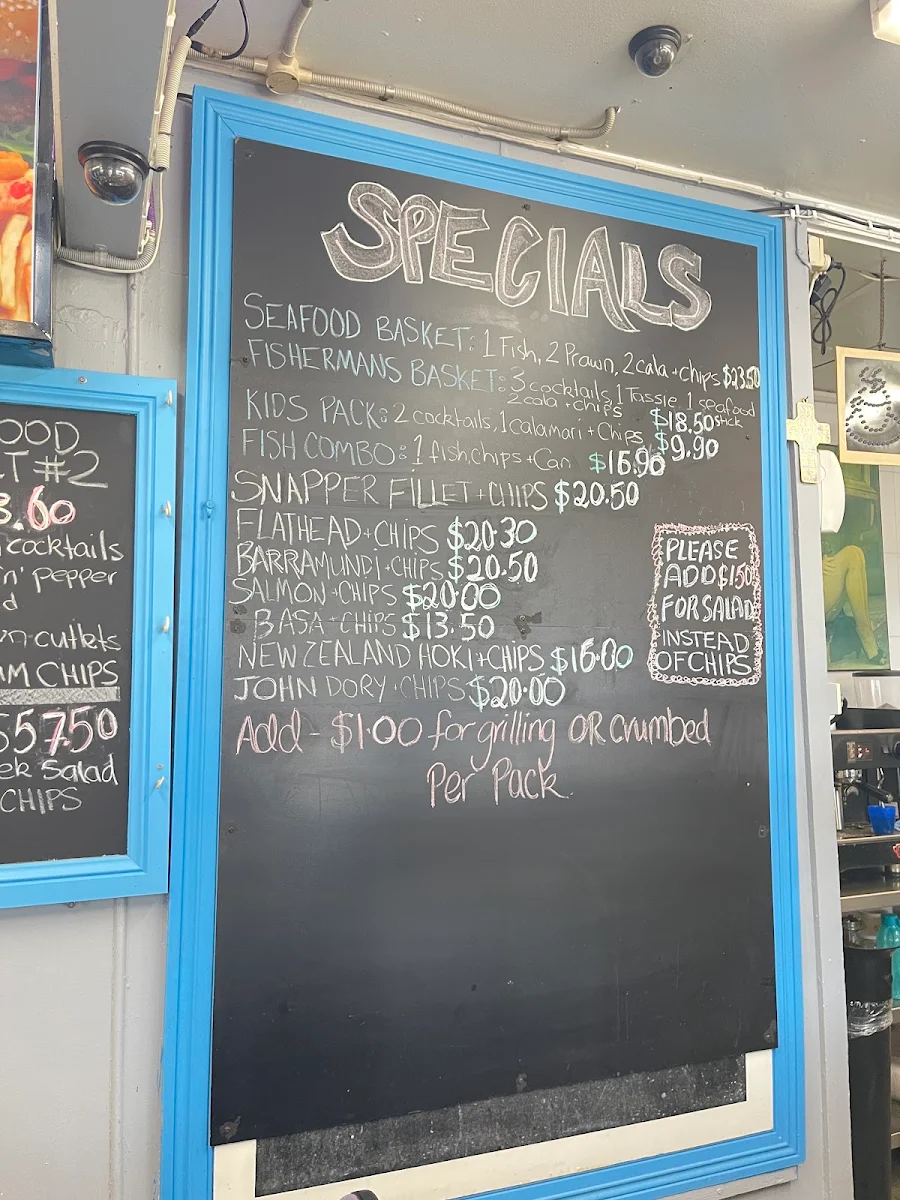 SPECIALS
SEAFOOD BASKET: 1 Fish, 2 Prawn, 2cala + chips $23.50
FISHERMANS BASKET: 3 cocktails, 1 Tassie 1 seafood stick
2cala + chips $18.50
KIDS PACK: 2 cocktails, 1 calamari + Chips $9.90
FISH COMBO: 1 fish, chips + Can $16.90
SNAPPER FILLET + CHIPS $20.50
FLATHEAD + CHIPS $20.30
BARRAMUNDI + CHIPS $20.50
SALMON + CHIPS $20.00
BASA + CHIPS $13.50
NEW ZEALAND HOKI + CHIPS $16.00
JOHN DORY + CHIPS $20.00
Add - $1.00 for grilling OR crumbed
Per Pack
PLEASE
ADD $1.50
FOR SALAD
INSTEAD
OF CHIPS
OOD
T #2
.60
cocktails
'n' pepper
d
n cutlets
M CHIPS
57.50
ek Salad
CHIPS